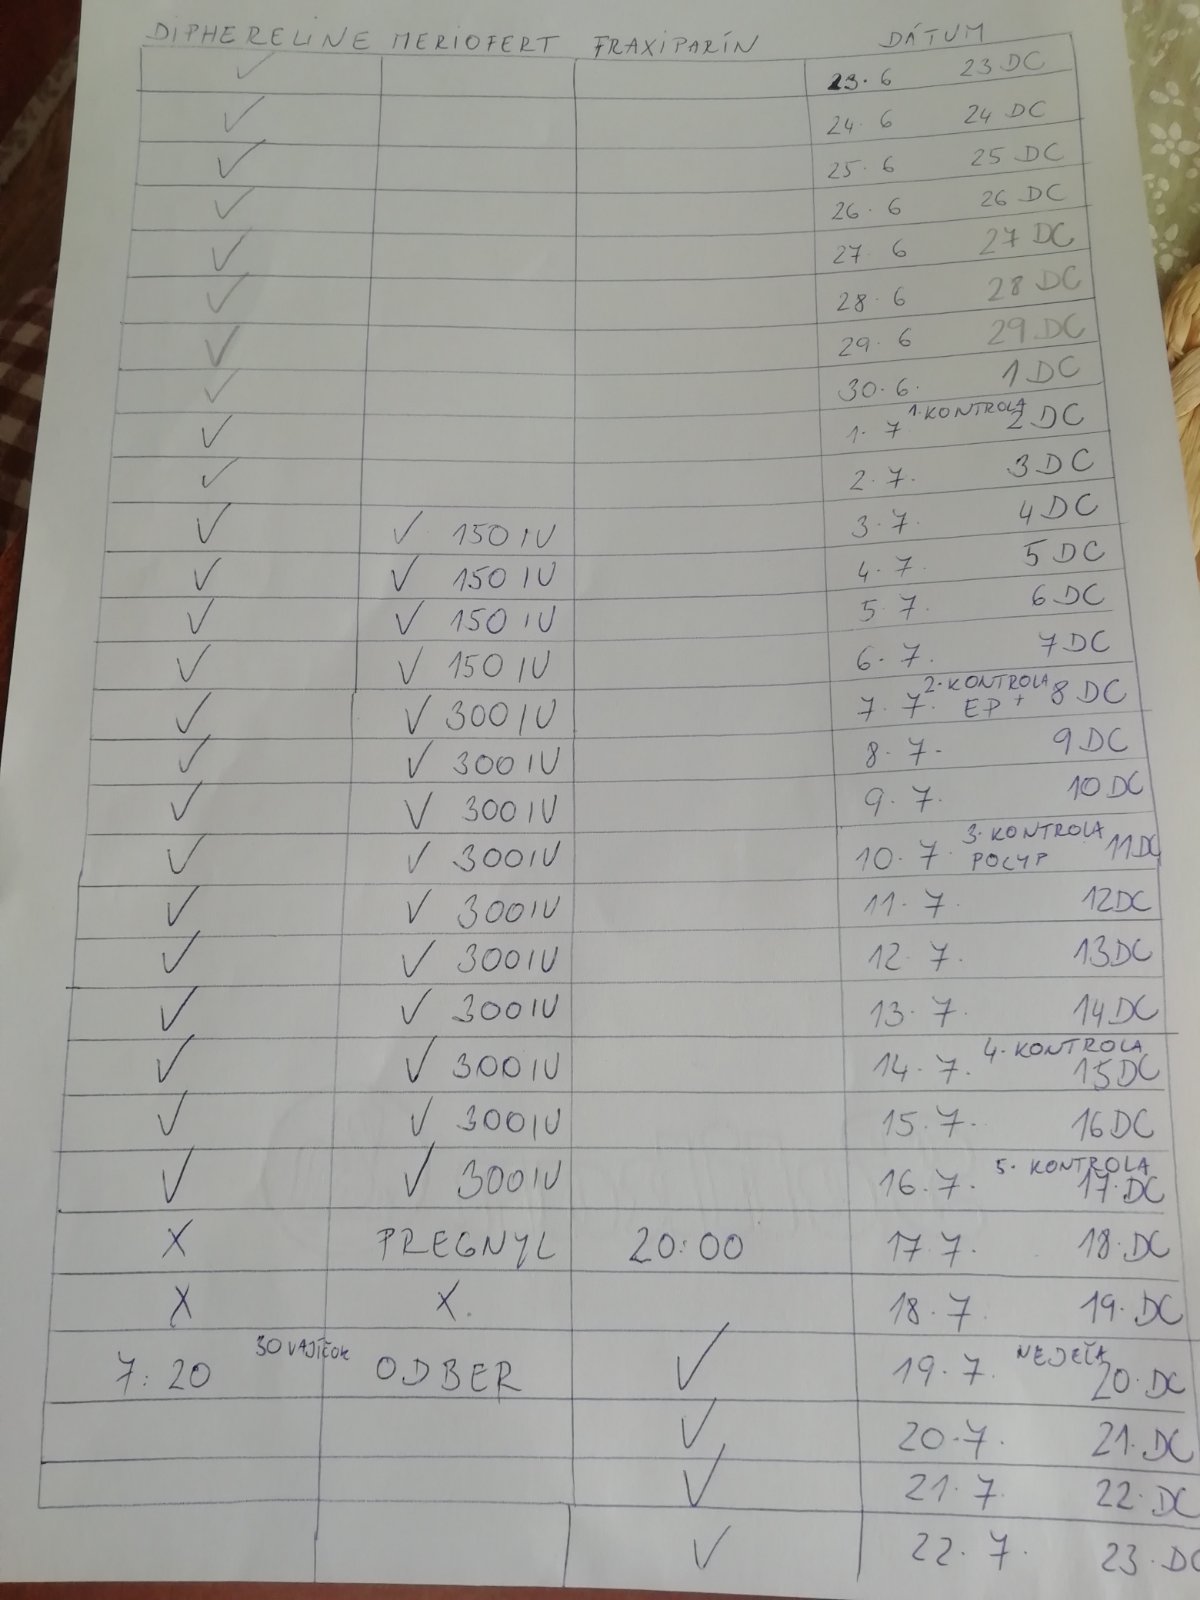 DIPHERELINE MERIOFERT FRAXIPARÍN DÁTUM
✓ 23. 6 23 DC
✓ 24. 6 24 DC
✓ 25. 6 25 DC
✓ 26. 6 26 DC
✓ 27. 6 27 DC
✓ 28. 6 28 DC
✓ 29. 6 29 DC
✓ 30. 6. 1 DC
✓ 1. 7 1. KONTROLA 2 DC
✓ 2. 7. 3 DC
✓ ✓ 150 IU 3. 7. 4 DC
✓ ✓ 150 IU 4. 7. 5 DC
✓ ✓ 150 IU 5. 7. 6 DC
✓ ✓ 150 IU 6. 7. 7 DC
✓ ✓ 300 IU 7. 7. 2. KONTROLA EP + 8 DC
✓ ✓ 300 IU 8. 7. 9 DC
✓ ✓ 300 IU 9. 7. 10 DC
✓ ✓ 300 IU 10. 7. 3. KONTROLA POLYP 11 DC
✓ ✓ 300 IU 11. 7. 12 DC
✓ ✓ 300 IU 12. 7. 13 DC
✓ ✓ 300 IU 13. 7. 14 DC
✓ ✓ 300 IU 14. 7. 4. KONTROLA 15 DC
✓ ✓ 300 IU 15. 7. 16 DC
✓ ✓ 300 IU 16. 7. 5. KONTROLA 17. DC
X PREGNYL 20:00 17 7. 18. DC
X X. 18. 7. 19. DC
7:20 30 VAJÍČOK ODBER ✓ 19. 7. NEDEĽA 20. DC
✓ 20. 7. 21. DC
✓ 21. 7. 22. DC
✓ 22. 7. 23. DC